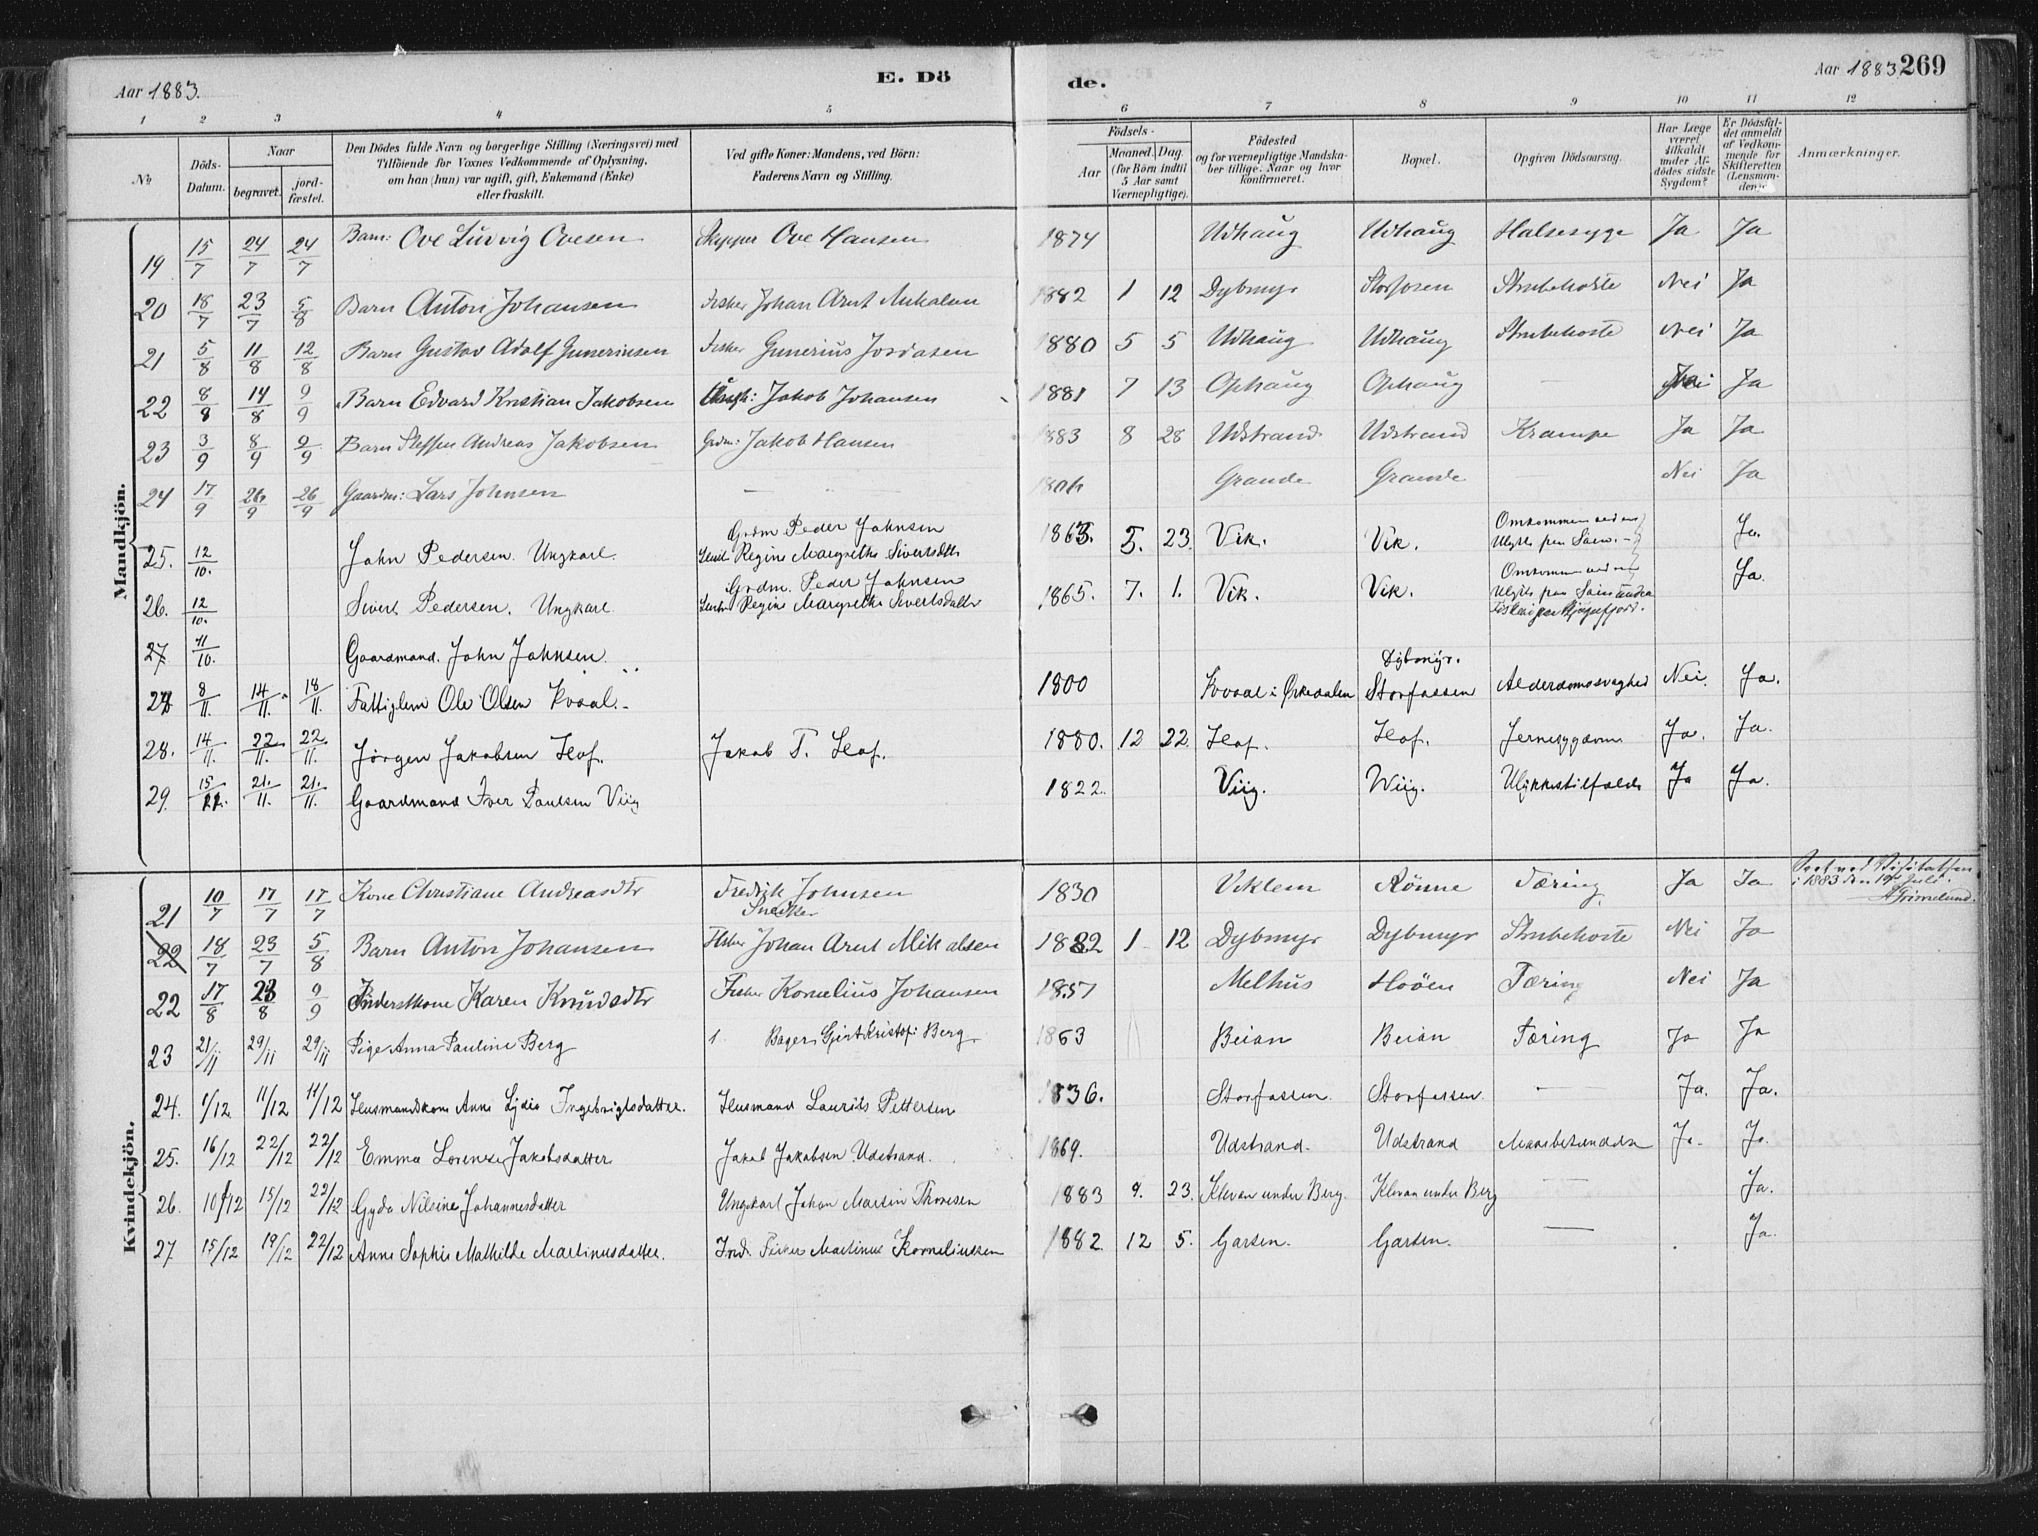 Aar 1883. E. Dö de. Aar 1883 269
1 2 3 4 5 6 7 8 9 10 11 12
No. Döds-Datum. Naar begravet. jordfæstet. Den Dödes fulde Navn og borgerlige Stilling (Næringsvei) med Tilföiende for Voxnes Vedkommende af Oplysning, om han (hun) var ugift, gift, Enkemand (Enke) eller fraskilt. Ved gifte Koner: Mandens, ved Börn: Faderens Navn og Stilling. Födsels- Aar Maaned. Dag. (for Börn indtil 5 Aar samt Værnepligtige). Födested og for værnepligtige Mandskaber tillige: Naar og hvor konfirmeret. Bopæl. Opgiven Dödsaarsag. Har Læge været tilkaldt under Afdödes sidste Sygdom? Er Dödsfaldet anmeldt af Vedkommende for Skifteretten (Lensmanden) Anmærkninger.
Mandkjön.
19 15/7 24/7 24/7 Barn: Ove Ludvig Ovesen Skipper Ove Hansen 1874 Udhaug Udhaug Halsesyge Ja Ja
20 18/7 23/7 5/8 Barn Anton Johansen Fisker Johan Arnt Mikalsen 1882 1 12 Dybmyr Storfosen Strubehoste Nei Ja
21 5/8 11/8 12/8 Barn Gustav Adolf Guneriusen Fisker Gunerius Jordasen 1880 5 5 Udhaug Udhaug Strubehoste Nei Ja
22 8/8 14/8 9/9 Barn Edvard Kristian Jakobsen Jakob Johansen 1881 7 13 Ophaug Ophaug — Ja
23 3/9 8/9 9/9 Barn Steffen Andreas Jakobsen Grdm: Jakob Hansen 1883 8 28 Udstrand Udstrand Krampe Ja Ja
24 17/9 26/9 26/9 Gaardm: Lars Johnsen — 1806 Grande Grande Nei Ja
25. 12/10. John Pedersen. Ungkarl. Grdm Peder Johnsen
Regine Margrethe Sivertsdtt. 1863. 5. 23. Vik. Vik. Omkommen ved en Ulykke paa Søen. Ja.
26. 12/10. Sivert Pedersen. Ungkarl Grdm. Peder Johnsen
Regine Margrethe Sivertsdatter 1865. 7. 1. Vik. Vik. Omkommen ved en Ulykke paa Søen Ja.
27. 11/10. Gaardmand. John Johnsen.
28 8/11. 14/11. 18/11. Fattiglem Ole Olsen Kvaal. 1800 Kvaal i Ørkedalen Dybmyr. Storfossen Alderdomssvaghed Nei. Ja.
28. 14/11. 22/11. 22/11. Jørgen Jakobsen Hof. Jakob T. Hof. 1880. 12 22. Hof. Hof. Jernesygdom Ja. Ja.
29. 15/11. 21./11. 21./11. Gaardmand Iver Paulsen Viig 1822. Viig. Wiig. Ulykkestilfælde Ja Ja.
Kvindekjön.
21 10/7 17/7 17/7 Kone Christiane Andreasdtr Fredrik Johnsen
Snedker 1830 Viklem Rönne Tæring Ja Ja Seet ved Visitatsen
i 1883 den 19de Juli.
Grimelund.
22 18/7 23/7 5/8 Barn Anton Johansen Fisker Johan Arnt Mikalsen 1882 1 12 Dybmyr Dybmyr Strubehoste Nei Ja
22 17/8 28/8 9/9 Karen Knudsdtr Fisker Kornelius Johansen 1857 Melhus Hoöen Tæring Nei Ja
23 21/11 29/11 29/11 Pige Anna Pauline Berg Bager Gjert Kristof: Berg 1863 Beian Beian Tæring Ja Ja
24. 1/12 11/12 11/12 Husmandskone Anne Lydia Ingebrigtsdatter. Husmand Laurits Pettersen 1836. Storfossen. Storfossen. — Ja. Ja.
25. 16/12 22/12 22/12 Emma Lorenze Jakobsdatter Jakob Jakobsen Udstrand. 1869. Udstrand. Udstrand Mavebetændelse Ja. Ja.
26. 10/12 15/12 22/12 Gyda Nilsine Johannesdatter Ungkarl Johan Martin Thoresen 1883 9. 23. Klevan under Berg. Klevan under Berg — Ja.
27 15/12 19/12 22/12 Anne Sophie Mathilde Martinusdatter. Fisker Martinus Korneliussen 1882. 12 5. Garsen. Garten. — Ja.